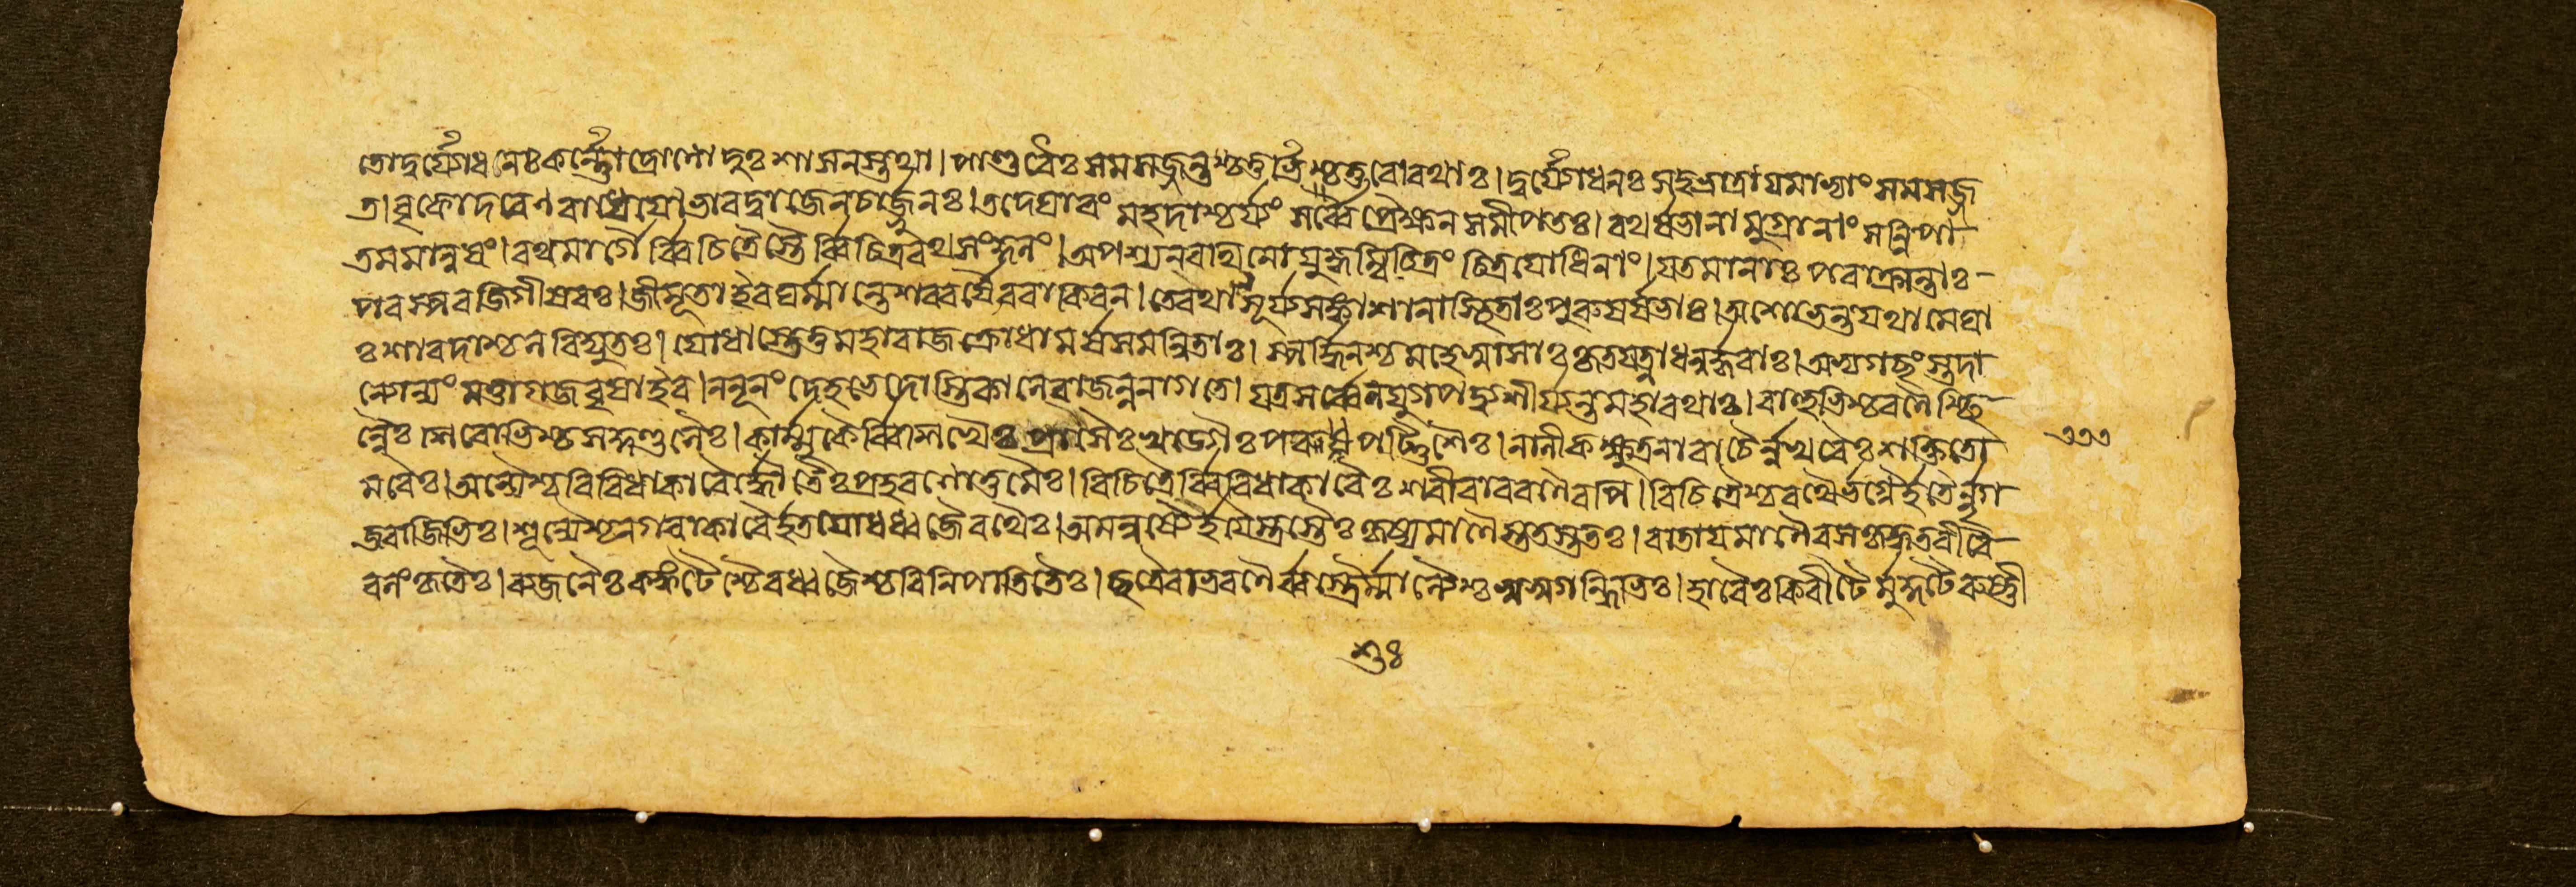 তো দুর্য্যোধনঃ কর্ন্নো দ্রোণো দুঃশাসনস্তথা। পাণ্ডবৈঃ সমসজ্জন্ত চতুর্ভিশ্চতুরো রথাঃ। দুর্য্যোধনঃ সহ ভ্রাত্রা যমাভ্যাং সমসজ্জ
ত। বৃকোদরেণ রাধেয়ো ভারদ্বাজেন চার্জ্জুনঃ। তদ্ঘোরং মহদাশ্চর্য্যং সর্ব্বে প্রৈক্ষন সমীপতঃ। রথর্ষভানামুগ্রানাং সন্নিপা-
তমমানুষং। রথমার্গৈ র্ব্বিচিত্রৈস্তৈ র্ব্বিচিত্ররথসংকুলং। অপশ্যন্ রথিনো যুদ্ধম্বিচিত্রং চিত্রযোধিনাং। যতমানাঃ পরাক্রান্তাঃ-
পরস্পর জিগীষবঃ। জীমূতা ইব ঘর্ম্মান্তে শরবর্ষৈরবাকিরন। তে রথান্ সূর্য্যসঙ্কাশানাস্থিতাঃ পুরুষর্ষভাঃ। অশোভন্ত যথা মেঘা
ঃ শারদাশ্চল বিদ্যুতঃ। যোধাস্তে তু মহারাজ ক্রোধামর্ষসমন্বিতাঃ। স্পর্দ্ধিনশ্চ মহেষ্বাসাঃ কৃতযত্না ধনুর্দ্ধরাঃ। অভ্যগচ্ছংস্তদা
ন্যোন্যং মত্তা গজবৃষা ইব। ন নূনং দেহভেদোস্তি কালে রাজন্ননাগতে। যত্র সর্ব্বে ন যুগপদ্ব্যশীর্য্যন্ত মহারথাঃ। বাহুভিশ্চরণৈশ্ছি-
ন্নৈঃ শিরোভিশ্চ সকুণ্ডলৈঃ। কার্ম্মুকৈর্ব্বিশিখৈঃ প্রাসৈঃ খড্গৈঃ পরশুপট্টিশৈঃ। নালীকক্ষুদ্রনারাচৈর্ন্নখরৈঃ শক্তিতো
মরৈঃ। অন্যৈশ্চ বিবিধাকারৈর্দ্ধৌতৈঃ প্রহরণোত্তমৈঃ। বিচিত্রৈর্ব্বিবিধাকারৈঃ শরীরাবরণৈরপি। বিচিত্রৈশ্চ রথৈর্ভগ্নৈর্হতৈর্ন্নগ
জবাজিভিঃ। শূন্যৈশ্চ নগরাকারৈর্হতযোধধ্বজৈ রথৈঃ। অমনুষ্যৈর্হয়ৈস্ত্রস্তৈঃ কৃষ্যমাণৈস্ততস্ততঃ। বাতায়মানৈরসকৃদ্ধতবীরৈ-
রলংকৃতৈঃ। ব্যজনৈঃ কঙ্কটৈশ্চৈব ধ্বজৈশ্চ বিনিপাতিতৈঃ। ছত্রৈরাভরণৈর্ব্বস্ত্রৈর্ম্মাল্যৈশ্চ সুগন্ধিভিঃ। হারৈঃ কিরীটৈর্মুকুটৈরুষ্ণী